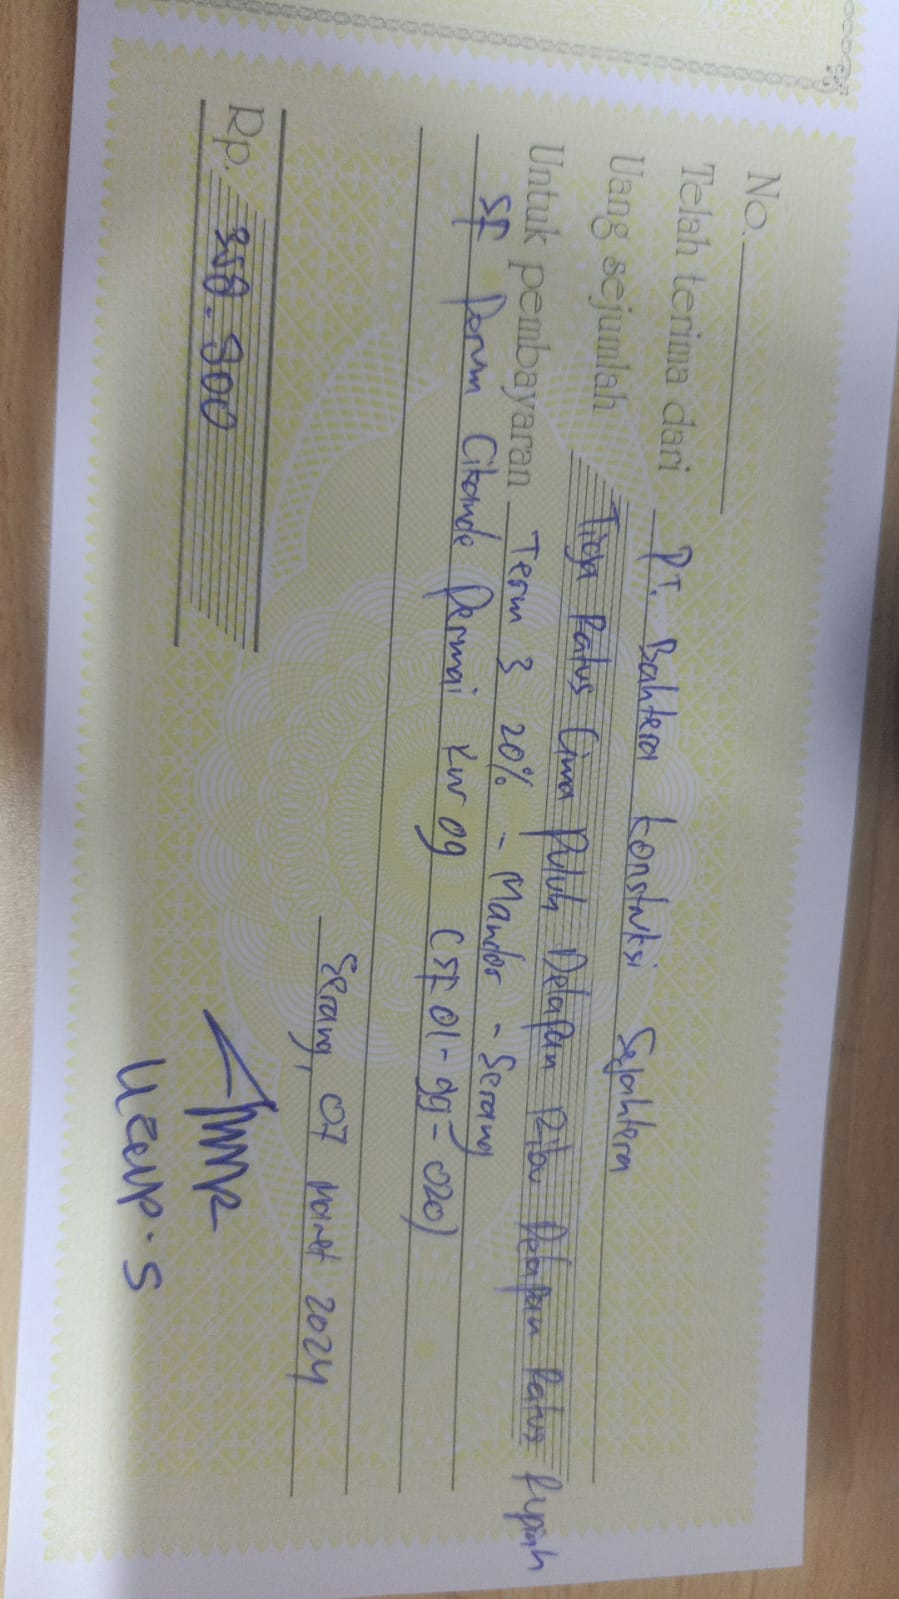 No.
Telah terima dari PT. Bahtera Konstruksi Sejahtera
Uang sejumlah Tiga Ratus Lima Puluh Delapan Ribu Delapan Ratus Rupiah
Untuk pembayaran Term 3 20% - Mandor - Serang
SF Perum Cikande Permai KW 09 (SF 01-99-020)
Serang, 07 Maret 2024
Rp. 358.900
Ucup.S